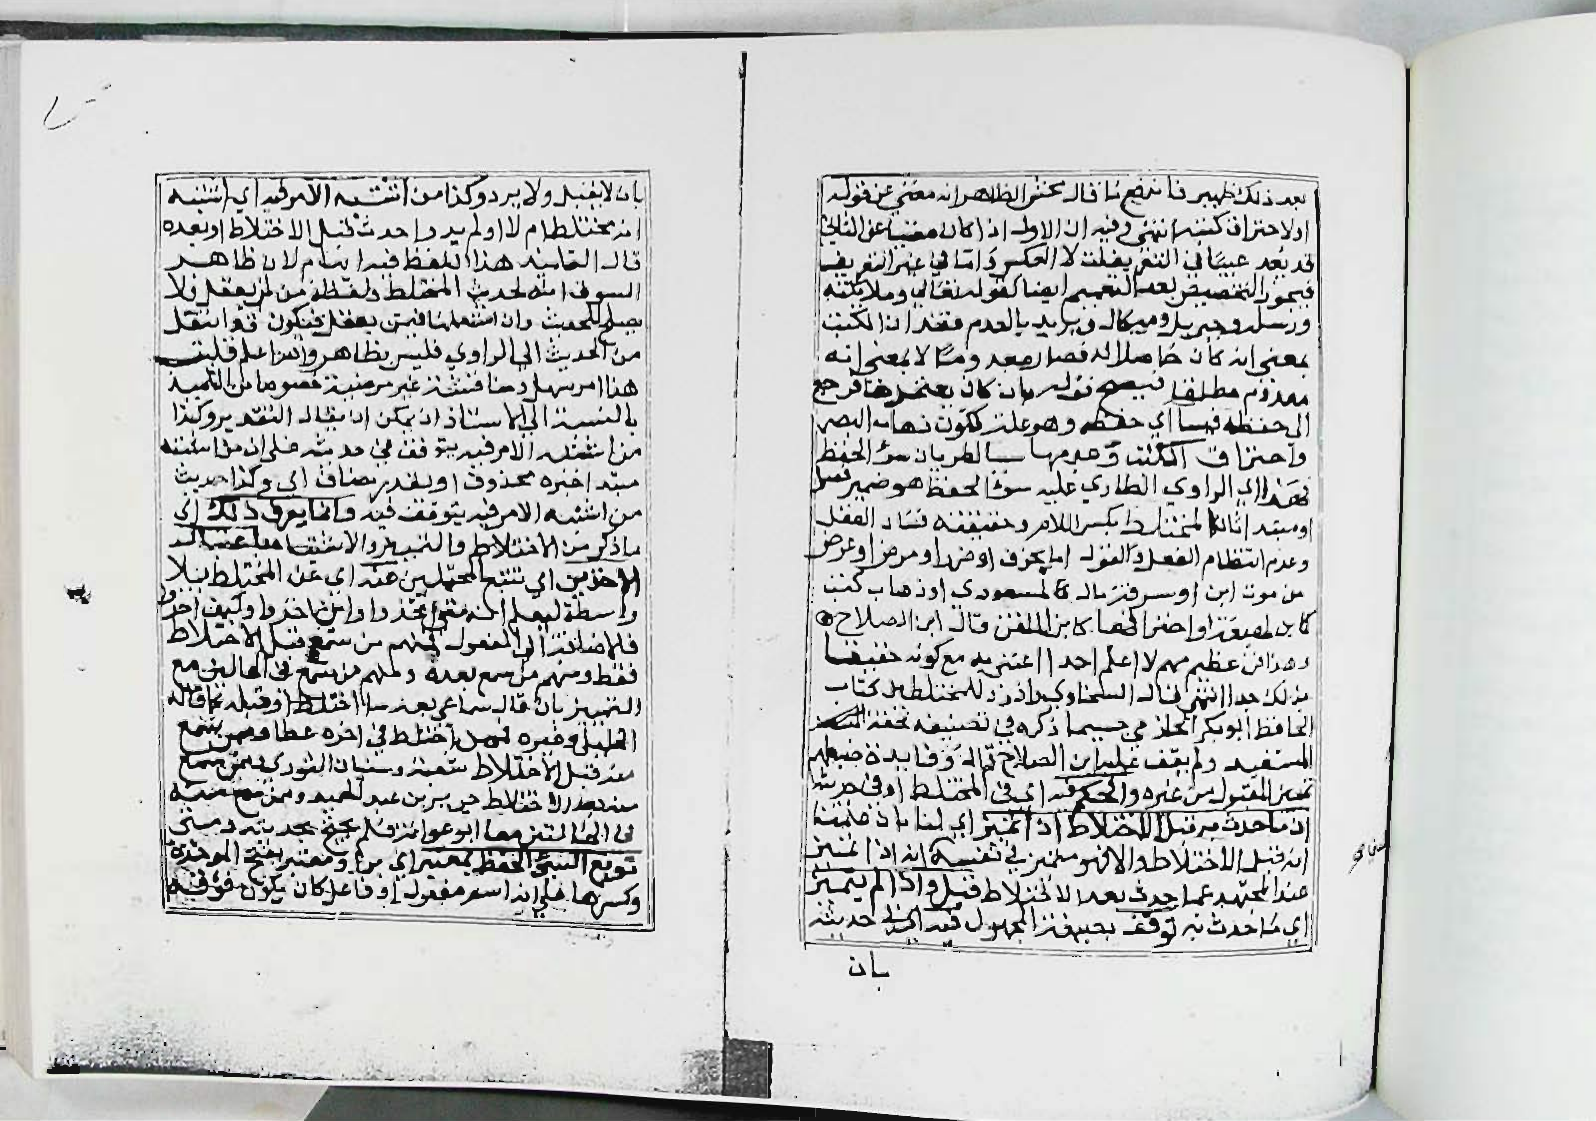 بعد ذلك ظهير فاتضح ما قال محشي الظاهر انه مغني عن قوله
اولاحتراق كتبه انتهى وفيه ان الاول اذا كان مغنيا عن الثاني
قد يعد عيبا في التعريفات لا العكس واما في غير التعريف
فيجوز التخصيص بعد التعميم ايضا كقوله تعالى وملائكته
ورسله وجبريل وميكال ويريد بالعدم فقد ان الكتب
بمعنى انه كان حاصلا له فصار معدوما لا بمعنى انه
معدوم مطلقا فيصح قوله بان كان يعتمدها فرجع
الى حفظه فساء اي حفظه وهو علة ككون ذهاب البصر
واحتراق الكتب وعدمها سببا لطريان سوء الحفظ
فهذا اي الراوي الطاري عليه سوء الحفظ هو ضمير فصل
او مبتدا ثان المختلط بكسر اللام وحقيقته فساد العقل
وعدم انتظام الفعل والقول اما بخرف او ضر او مرض او عرض
من موت ابن او سرقة مال كالمسعودي او ذهاب كتب
كابن لهيعة او احتراقها كابن الملقن قال ابن الصلاح
وهذا فن عظيم مهم لا اعلم احدا اعتنى به مع كونه حقيقا
بذلك جدا انتهى قال السخاوي افرد للمختلطين كتاب
الحافظ ابو بكر الحازمي حسبما ذكره في تصنيفه تحفة
المستفيد ولم يقف عليه ابن الصلاح وفائدة ضبطهم
تمييز المقبول من غيره والحكم فيه اي في المختلط او في حديثه
ان ما حدث به قبل الاختلاط اذا تميز اي لنا بان علمنا
انه قبل الاختلاط والا فهو متميز في نفسه اي اذا تميز
عند المجتهد عما حدث بعد الاختلاط قبل واذا لم يتميز
اي ما حدث به توقف بصيغة المجهول فيه اي في حديثه
بان
بان لا يقبل ولا يرد وكذا من اشتبه الامر فيه اي اشتبه
انه مختلط ام لا او لم يدر احدث قبل الاختلاط او بعده
قال التلميذ هذا اللفظ فيه ايهام لان ظاهر
السوق انه لحديث المختلط ولفظه من لمن يعقل ولا
يصلح للحديث وان استعملها فيمن يعقل فيكون قد انتقل
من الحديث الى الراوي فليس بظاهر والله اعلم قلت
هذا امر سهل ومنافشته غير مرضية خصوصا من التلميذ
بالنسبة الى الاستاذ اذ يمكن ان يقال التقدير وكذا
من اشتبه الامر فيه يتوقف في حديثه على ان من اشتبه
مبتدا خبره محذوف او يقدر مضاف اي وكذا حديث
من اشتبه الامر فيه يتوقف فيه وانما يعرف ذلك اي
ما ذكر من الاختلاط والتمييز والاشتباه باعتبار
الاخذين اي بتتبع المحتملين عنه اي عن المختلط بلا
واسطة ليعلم انه متى اخذوا واين اخذوا وكيف اخذوا
فالاضافة الى المفعول فمنهم من سمع قبل الاختلاط
فقط ومنهم من سمع بعده ومنهم من سمع في الحالين مع
التمييز بان قال سماعي بعد ما اختلط او قبله كما قاله
وغيره فممن اختلط في اخره عطا وممن سمع
منه قبل الاختلاط شعبة وسفيان الثوري وممن سمع
منه بعد الاختلاط جرير بن عبد الحميد وممن سمع منه
في الحالتين معا ابو عوانة فلم يحتج بحديثه ومتى
توبع السيئ الحفظ بمعتبر اي براو معتبر بفتح الموحدة
وكسرها على انه اسم مفعول او فاعل كان يكون فوقه